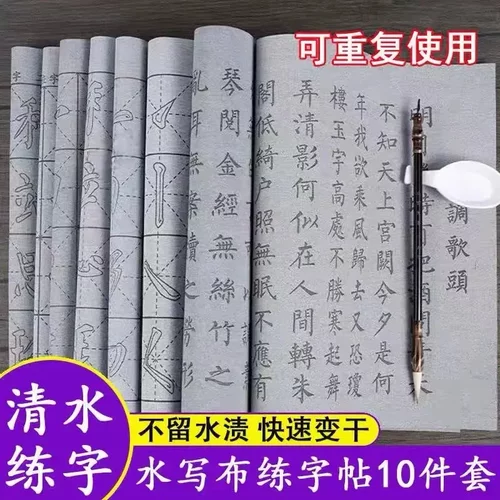 可重复使用
調歌頭
時有把酒問
不知天上宮闕今夕是何
年我欲乘風歸去又恐瓊
樓玉宇高處不勝寒起舞
弄清影何似在人間轉朱
閣低綺戶照無眠不應有
琴閱金經無絲竹之
亂耳無案牘之勞形
清水
练字
不留水渍 快速变干
水写布练字帖10件套